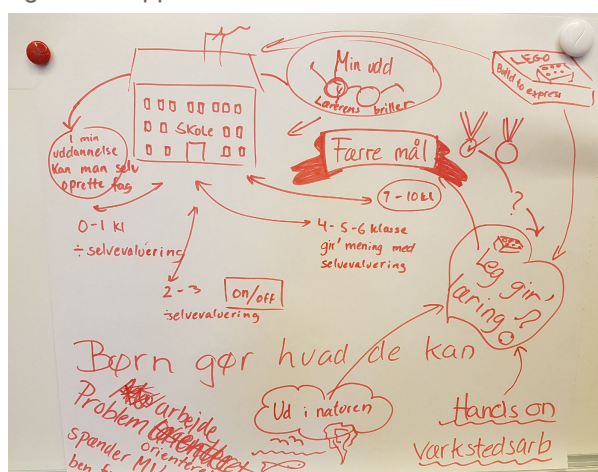 Min udd
Lærerens briller
LEGO
Build to express
SKOLE
I min
uddannelse
kan man selv
oprette fag
Færre mål
7-10 kl
0-1 kl
÷selvevaluering
4-5-6 klasse
gir' mening med
selvevaluering
2-3
on/off
÷selvevaluering
?
Leg gir'
læring?
Børn gør hvad de kan
arbejde
Problem
orientere
spænder
ben
Ud i naturen
Hands on
Værkstedsarb